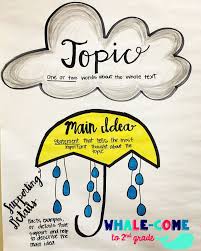 Topic
One or two words about the whole text
Main Idea
Statement that tells the most
important thought about the
topic
Supporting
Details
Facts, examples,
or details that
support and help
to describe the
main idea
WHALE-COME
to 2nd grade